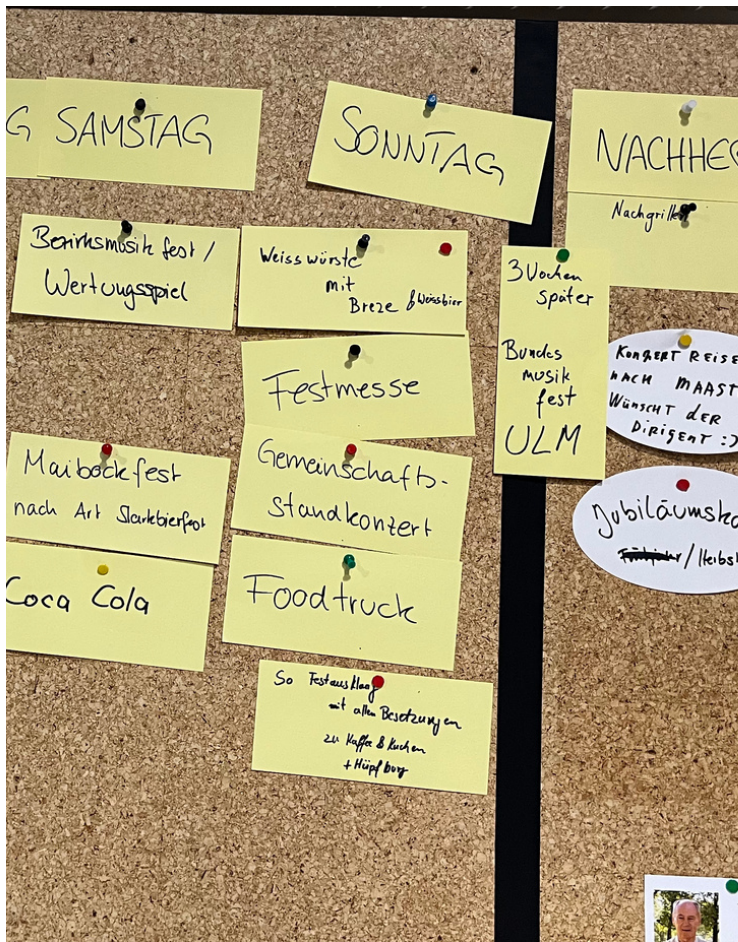 G
SAMSTAG
Bezirksmusikfest /
Wertungsspiel
Maibockfest
nach Art Starkbierfest
Coca Cola
SONNTAG
Weisswürste
mit
Breze & Weissbier
Festmesse
Gemeinschafts-
standkonzert
Foodtruck
So Festausklang
mit allen Besetzungen
zu Kaffee & Kuchen
+ Hüpfburg
3 Wochen
später
Bundes
musik
fest
ULM
NACHHE
Nachgrillen
KONZERT REISE
NACH MAAST
WÜNSCHT DER
DIRIGENT :)
Jubiläumsko
/ Herbst